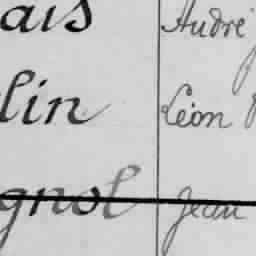 ais André
lin Léon
gnol Jean